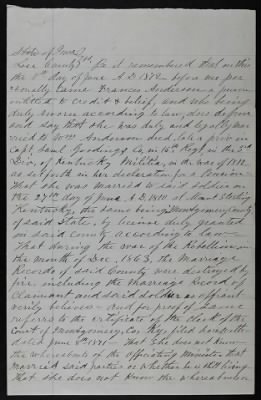 State of Iowa
Lee County SS. Be it remembered that on this
the 8th day of June A.D. 1872 before me per
sonally came Frances Anderson a person
entitled to credit & belief, and who being
duly sworn according to law, does depose
and say that she was duly and legally mar
ried to Wm Anderson died, late a priv. in
Capt. Saml Goodings Co. in 15th Regt. in the
Div. of Kentucky Militia, in the war of 1812,
as set forth in her declaration for a Pension
That she was married to said soldier on
the 27th day of June A.D. 1811 at Mount Sterling
Kentucky, the same being in Montgomery County
of said State, by license duly granted
in said County according to law
That during the war of the Rebellion in
the month of Dec. 1863, the Marriage
Records of said County were destroyed by
fire including the marriage Record of
Claimant and said soldier as affiant
verily believes and for proof of same
referrs to the certificate of the clerk of the
Court of Montgomery Co. Ky. filed herewith
dated June 5th 1871 That she does not know
the whereabouts of the officiating Minister that
married said parties or whether he is still living
That she does not know the whereabouts